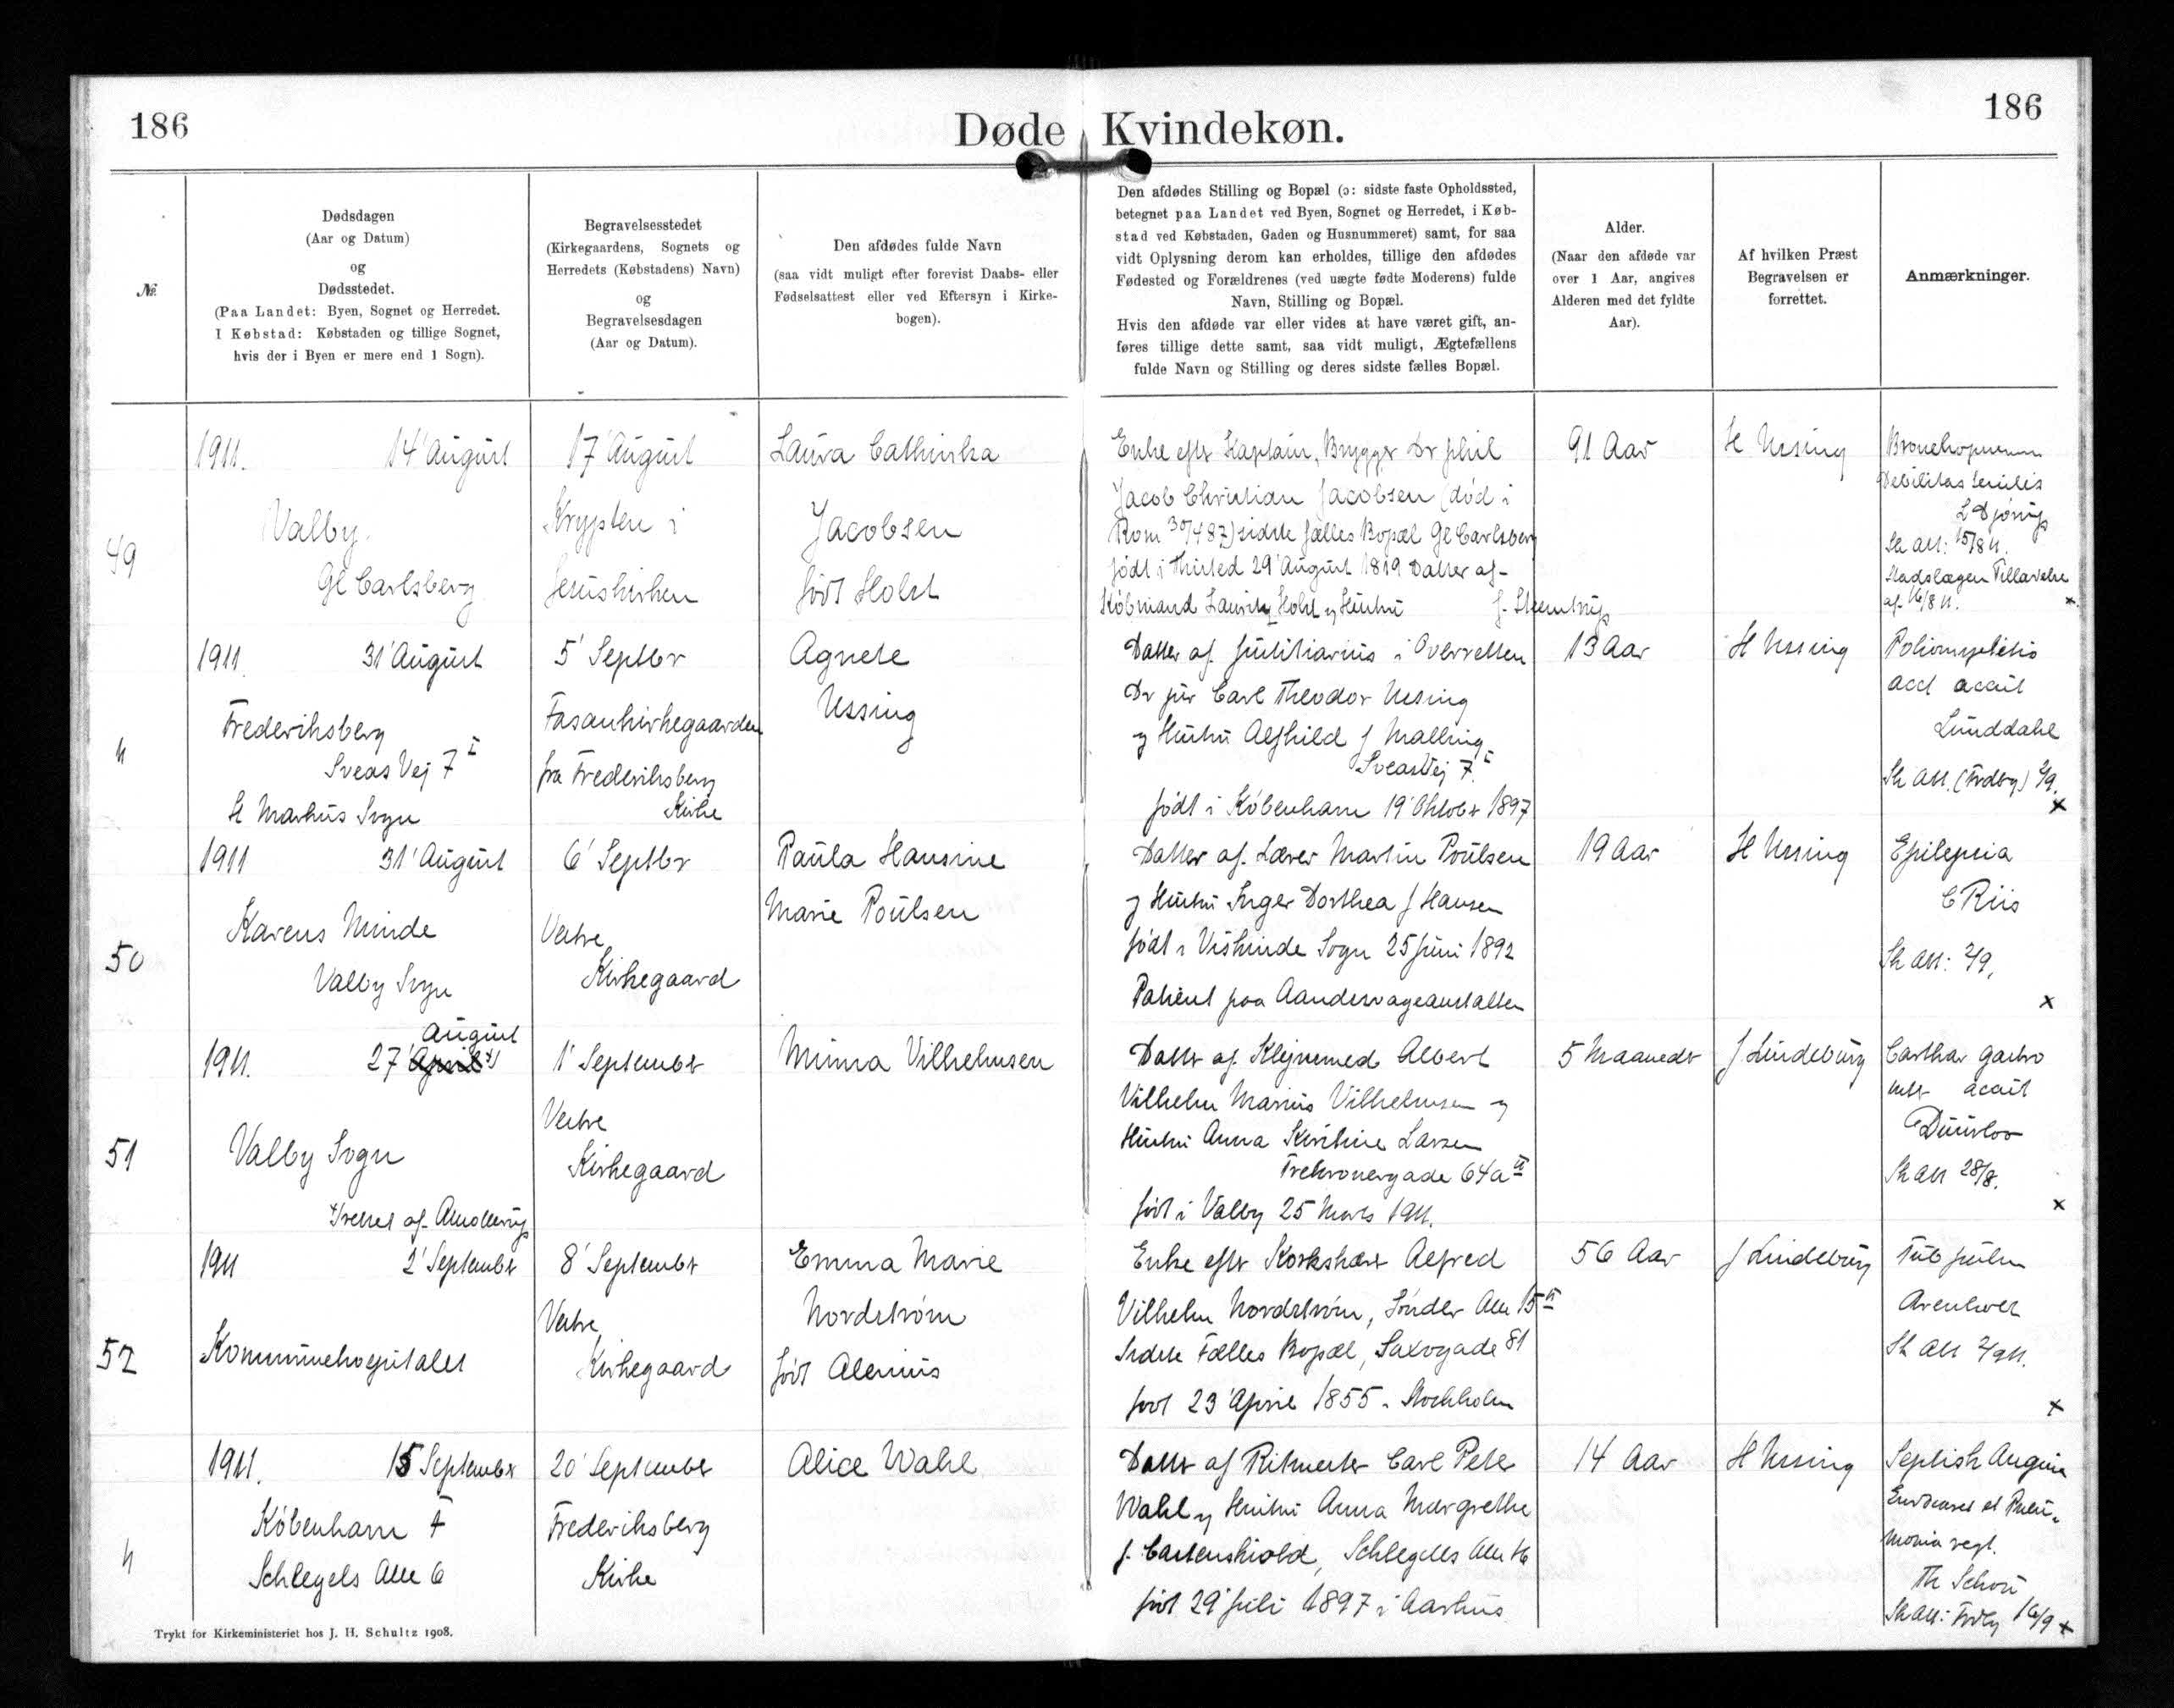 186
Døde Kvindekøn.
186
№
Dødsdagen
(Aar og Datum)
og
Dødsstedet.
(Paa Landet: Byen, Sognet og Herredet.
I Købstad: Købstaden og tillige Sognet,
hvis der i Byen er mere end 1 Sogn).
Begravelsesstedet
(Kirkegaardens, Sognets og
Herredets (Købstadens) Navn)
og
Begravelsesdagen
(Aar og Datum).
Den afdødes fulde Navn
(saa vidt muligt efter forevist Daabs- eller
Fødselsattest eller ved Eftersyn i Kirke-
bogen).
Den afdødes Stilling og Bopæl (ɔ: sidste faste Opholdssted,
betegnet paa Landet ved Byen, Sognet og Herredet, i Køb-
stad ved Købstaden, Gaden og Husnummeret) samt, for saa
vidt Oplysning derom kan erholdes, tillige den afdødes
Fødested og Forældrenes (ved uægte fødte Moderens) fulde
Navn, Stilling og Bopæl.
Hvis den afdøde var eller vides at have været gift, an-
føres tillige dette samt, saa vidt muligt, Ægtefællens
fulde Navn og Stilling og deres sidste fælles Bopæl.
Alder.
(Naar den afdøde var
over 1 Aar, angives
Alderen med det fyldte
Aar).
Af hvilken Præst
Begravelsen er
forrettet.
Anmærkninger.
49
1911. 14' August
Valby
Gl Carlsberg
17' August
Krypten i
Jesuskirken
Laura Cathinka
Jacobsen
født Holst
Enke efter Kaptain, Brygger Dr phil
Jacob Christian Jacobsen (død i
Rom 30/4 87) sidste fælles Bopæl Gl Carlsberg
født i Thisted 29' August 1819 Datter af
Købmand Lauritz Holst og Hustru f. Steenstrup
91 Aar
H Ussing
Bronchopneum
Debilitas senilis
L Djørup
Sk Att: 15/8 11.
Stadslægen Tilladelse
af 16/8 11.
x
h
1911. 31' August
Frederiksberg
Sveas Vej 7 I
St Markus Sogn
5' Septbr
Fasankirkegaarden
fra Frederiksberg
Kirke
Agnete
Ussing
Datter af Justitiarius i Overretten
Dr jur Carl Theodor Ussing
og Hustru Alfhild f Malling
Sveasvej 7. I
født i København 19' Oktober 1897
13 Aar
H Ussing
Poliomyelitis
acut
Lunddahl
Sk Att. (Frdbg) 2/9.
x
50
1911 31' August
Karens Minde
Valby Sogn
6' Septbr
Vestre
Kirkegaard
Paula Hansine
Marie Poulsen
Datter af Lærer Martin Poulsen
og Hustru Inger Dorthea f Hansen
født i Viskinde Sogn 25 Juni 1892
Patient paa Aandssvageanstalten
19 Aar
H Ussing
Epilepsia
C Riis
Sk Att: 2/9.
x
51
August
1911. 27' April x)
Valby Sogn
x) rettet af Amollerup
1' September
Vestre
Kirkegaard
Minna Vilhelmsen
Datter af Klejnsmed Albert
Vilhelm Marius Vilhelmsen og
Hustru Anna Kirstine Larsen
Trekronergade 64a
født i Valby 25 Marts 1911.
5 Maaneder
J. Lindeburg
Catthar gastro
acut
Duurloo
Sk Att 28/8.
x
52
1911 2' September
Kommunehospitalet
8' September
Vestre
Kirkegaard
Emma Marie
Nordstrøm
født Alenius
Enke efter Korkskærer Alfred
Vilhelm Nordstrøm, Sønder Alle 15
Sidste Fælles Bopæl, Saxogade 81
født 23' April 1855 i Stockholm
56 Aar
J Lindeburg
Tub pulm
Sk Att
x
h
1911. 15 September
København F
Schlegels Alle 6
20' September
Frederiksberg
Kirke
Alice Wahl
Datter af Ritmester Carl Peter
Wahl og Hustru Anna Margrethe
f. Castenskiold, Schlegels Alle 6
født 29' Juli 1897 i Aarhus
14 Aar
H Ussing
Septisk Angina
Endocard et Pneu-
monia sept.
Th Schou
Sk Att: Frdbg 16/9 x
Trykt for Kirkeministeriet hos J. H. Schultz 1908.